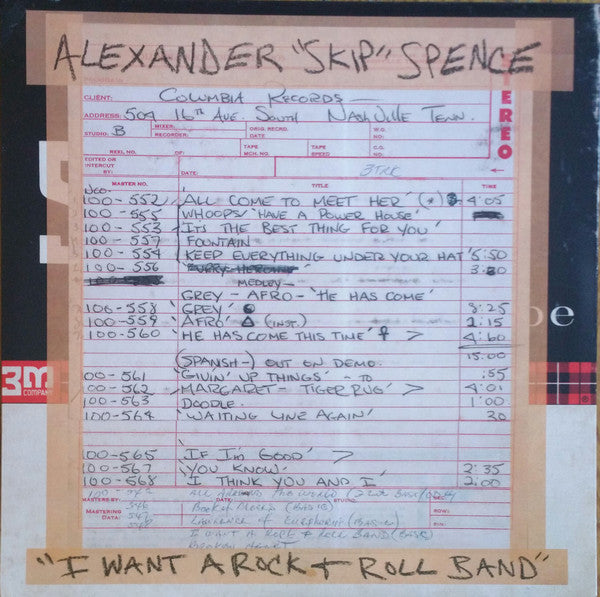 ALEXANDER "SKIP" SPENCE
STEREO
CLIENT: COLUMBIA RECORDS —
ADDRESS: 504 16TH AVE. SOUTH NASHVILLE TENN.
STUDIO: B MIXER: RECORDER: ORIG. RECRD. DATE: W.O. NO:
REEL NO. TAPE MCH. NO. TAPE SPEED CO. NO:
EDITED OR INTERCUT BY: DATE: 3TRK
MASTER NO. TITLE TIME
NCO-
100-552 'ALL COME TO MEET HER' (*) 4:05
100-555 'WHOOPS' HAVE A POWER HOUSE'
100-553 'ITS THE BEST THING FOR YOU'
100-557 FOUNTAIN
100-554 'KEEP EVERYTHING UNDER YOUR HAT' 5:50
100-556
MEDLEY-
GREY - AFRO - 'HE HAS COME'
100-558 'GREY' 8:25
100-559 'AFRO' Δ (INST.) 2:15
100-560 'HE HAS COME THIS TIME' >
15:00
(SPANISH-) OUT ON DEMO.
100-561 'GIVIN' UP THINGS' - TO :55
100-562 'MARGARET - TIGER RUG' > 4:01
100-563 DOODLE 1:00
100-564 'WAITING LINE AGAIN' 30
100-565 'IF I'M GOOD' >
100-567 'YOU KNOW' 2:35
100-568 'I THINK YOU AND I' 2:00
ALL AROUND THE WORLD
MASTERS BY: DATE: STUDIO:
MASTERING DATA: ROW:
BIN:
I WANT A ROCK & ROLL BAND (BASIC)
BROKEN HEART
3M
COMPANY
oe
"I WANT A ROCK & ROLL BAND"